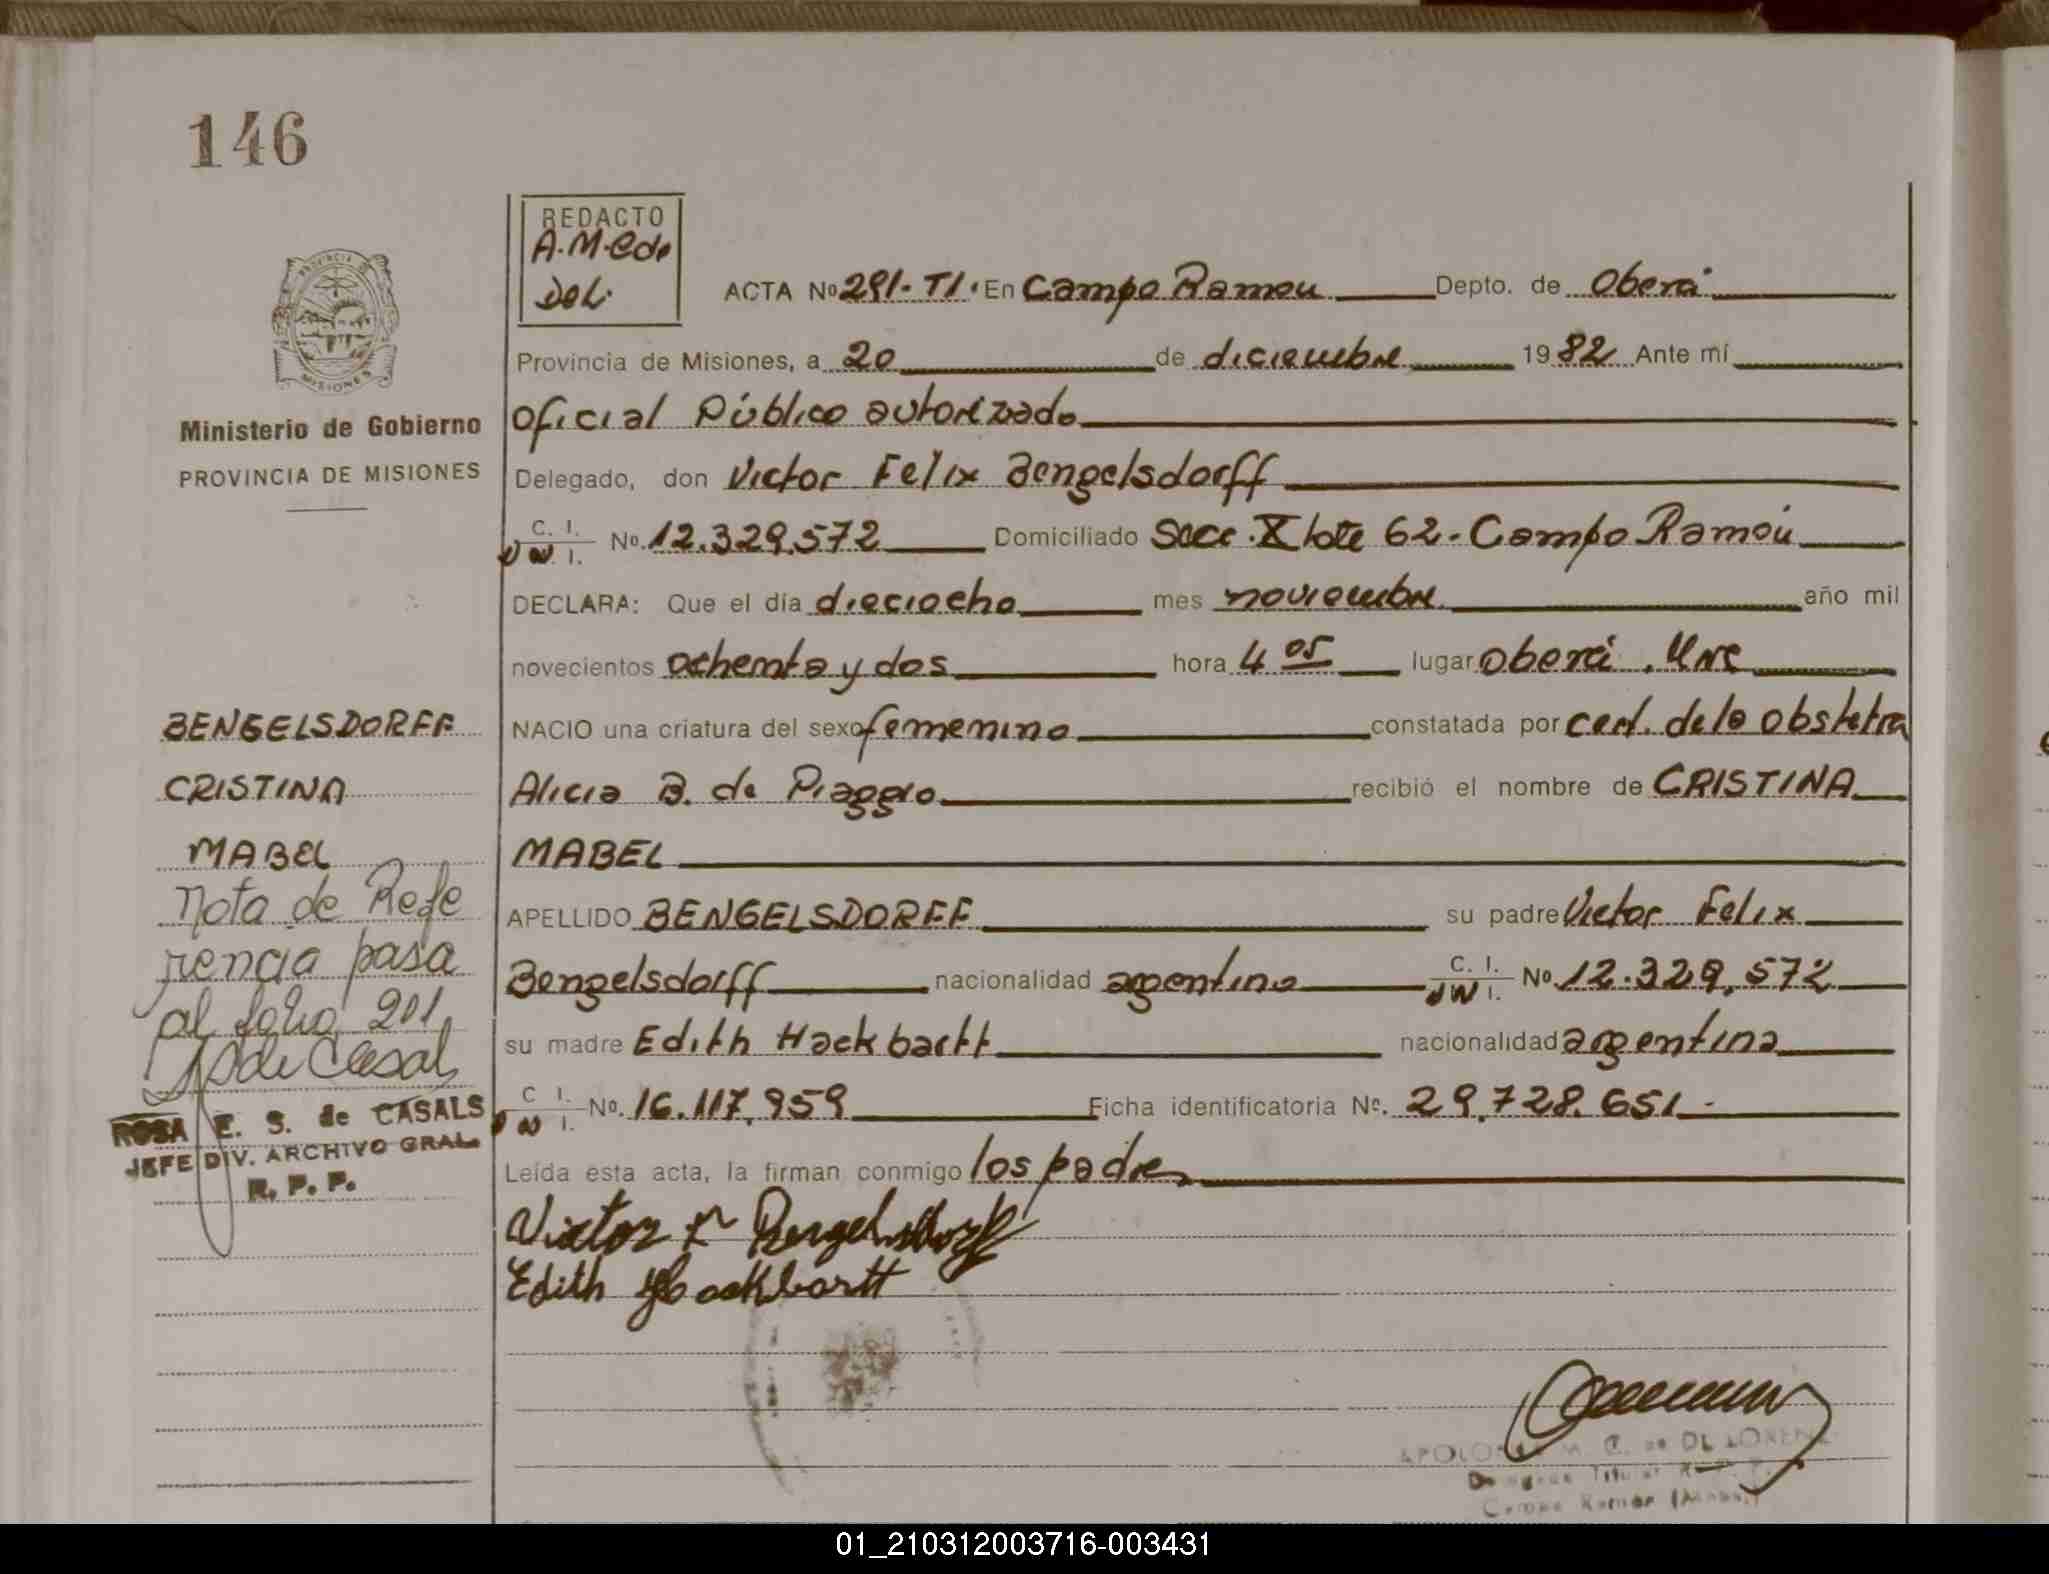 146
REDACTO
A.M.C de
Del.
PROVINCIA DE
MISIONES
Ministerio de Gobierno
PROVINCIA DE MISIONES
ACTA Nº 291. TI. En Campo Ramon Depto. de Oberá
Provincia de Misiones, a 20 de diciembre 1982 Ante mí
Oficial Público autorizado
Delegado, don Victor Felix Bengelsdorff
C. I.
I. Nº. 12.329.572 Domiciliado Secc. X lote 62. Campo Ramón
DECLARA: Que el día dieciocho mes noviembre año mil
novecientos ochenta y dos hora 4 05 lugar Oberá, Mnes
NACIO una criatura del sexo femenino constatada por cert. de la obstetra
Alicia B. de Piaggio recibió el nombre de CRISTINA
MABEL
APELLIDO BENGELSDORFF su padre Victor Felix
Bengelsdorff nacionalidad argentina C. I. Nº. 12.329.572
su madre Edith Hackbartt nacionalidad argentina
C I. Nº. 16.117.959 Ficha identificatoria Nº. 29.728.651.-
Leída esta acta, la firman conmigo los padres
Victor F Bengelsdorff
Edith Hackbartt
BENGELSDORFF
CRISTINA
MABEL
Nota de Refe
rencia pasa
al folio 201
de Casals
ROSA E. S. de CASALS
JEFE DIV. ARCHIVO GRAL.
R. P. P.
M. C. de DI LORENZ
Titular
Campo Ramón
01_210312003716-003431